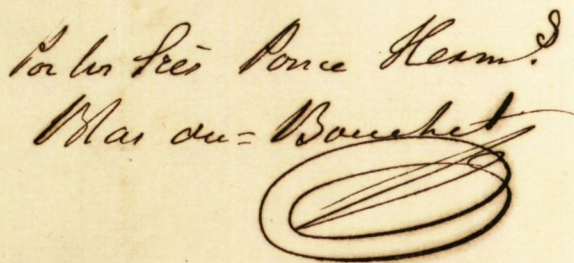 Por los Sres Ponce Herms.
Blas du=Bouchet